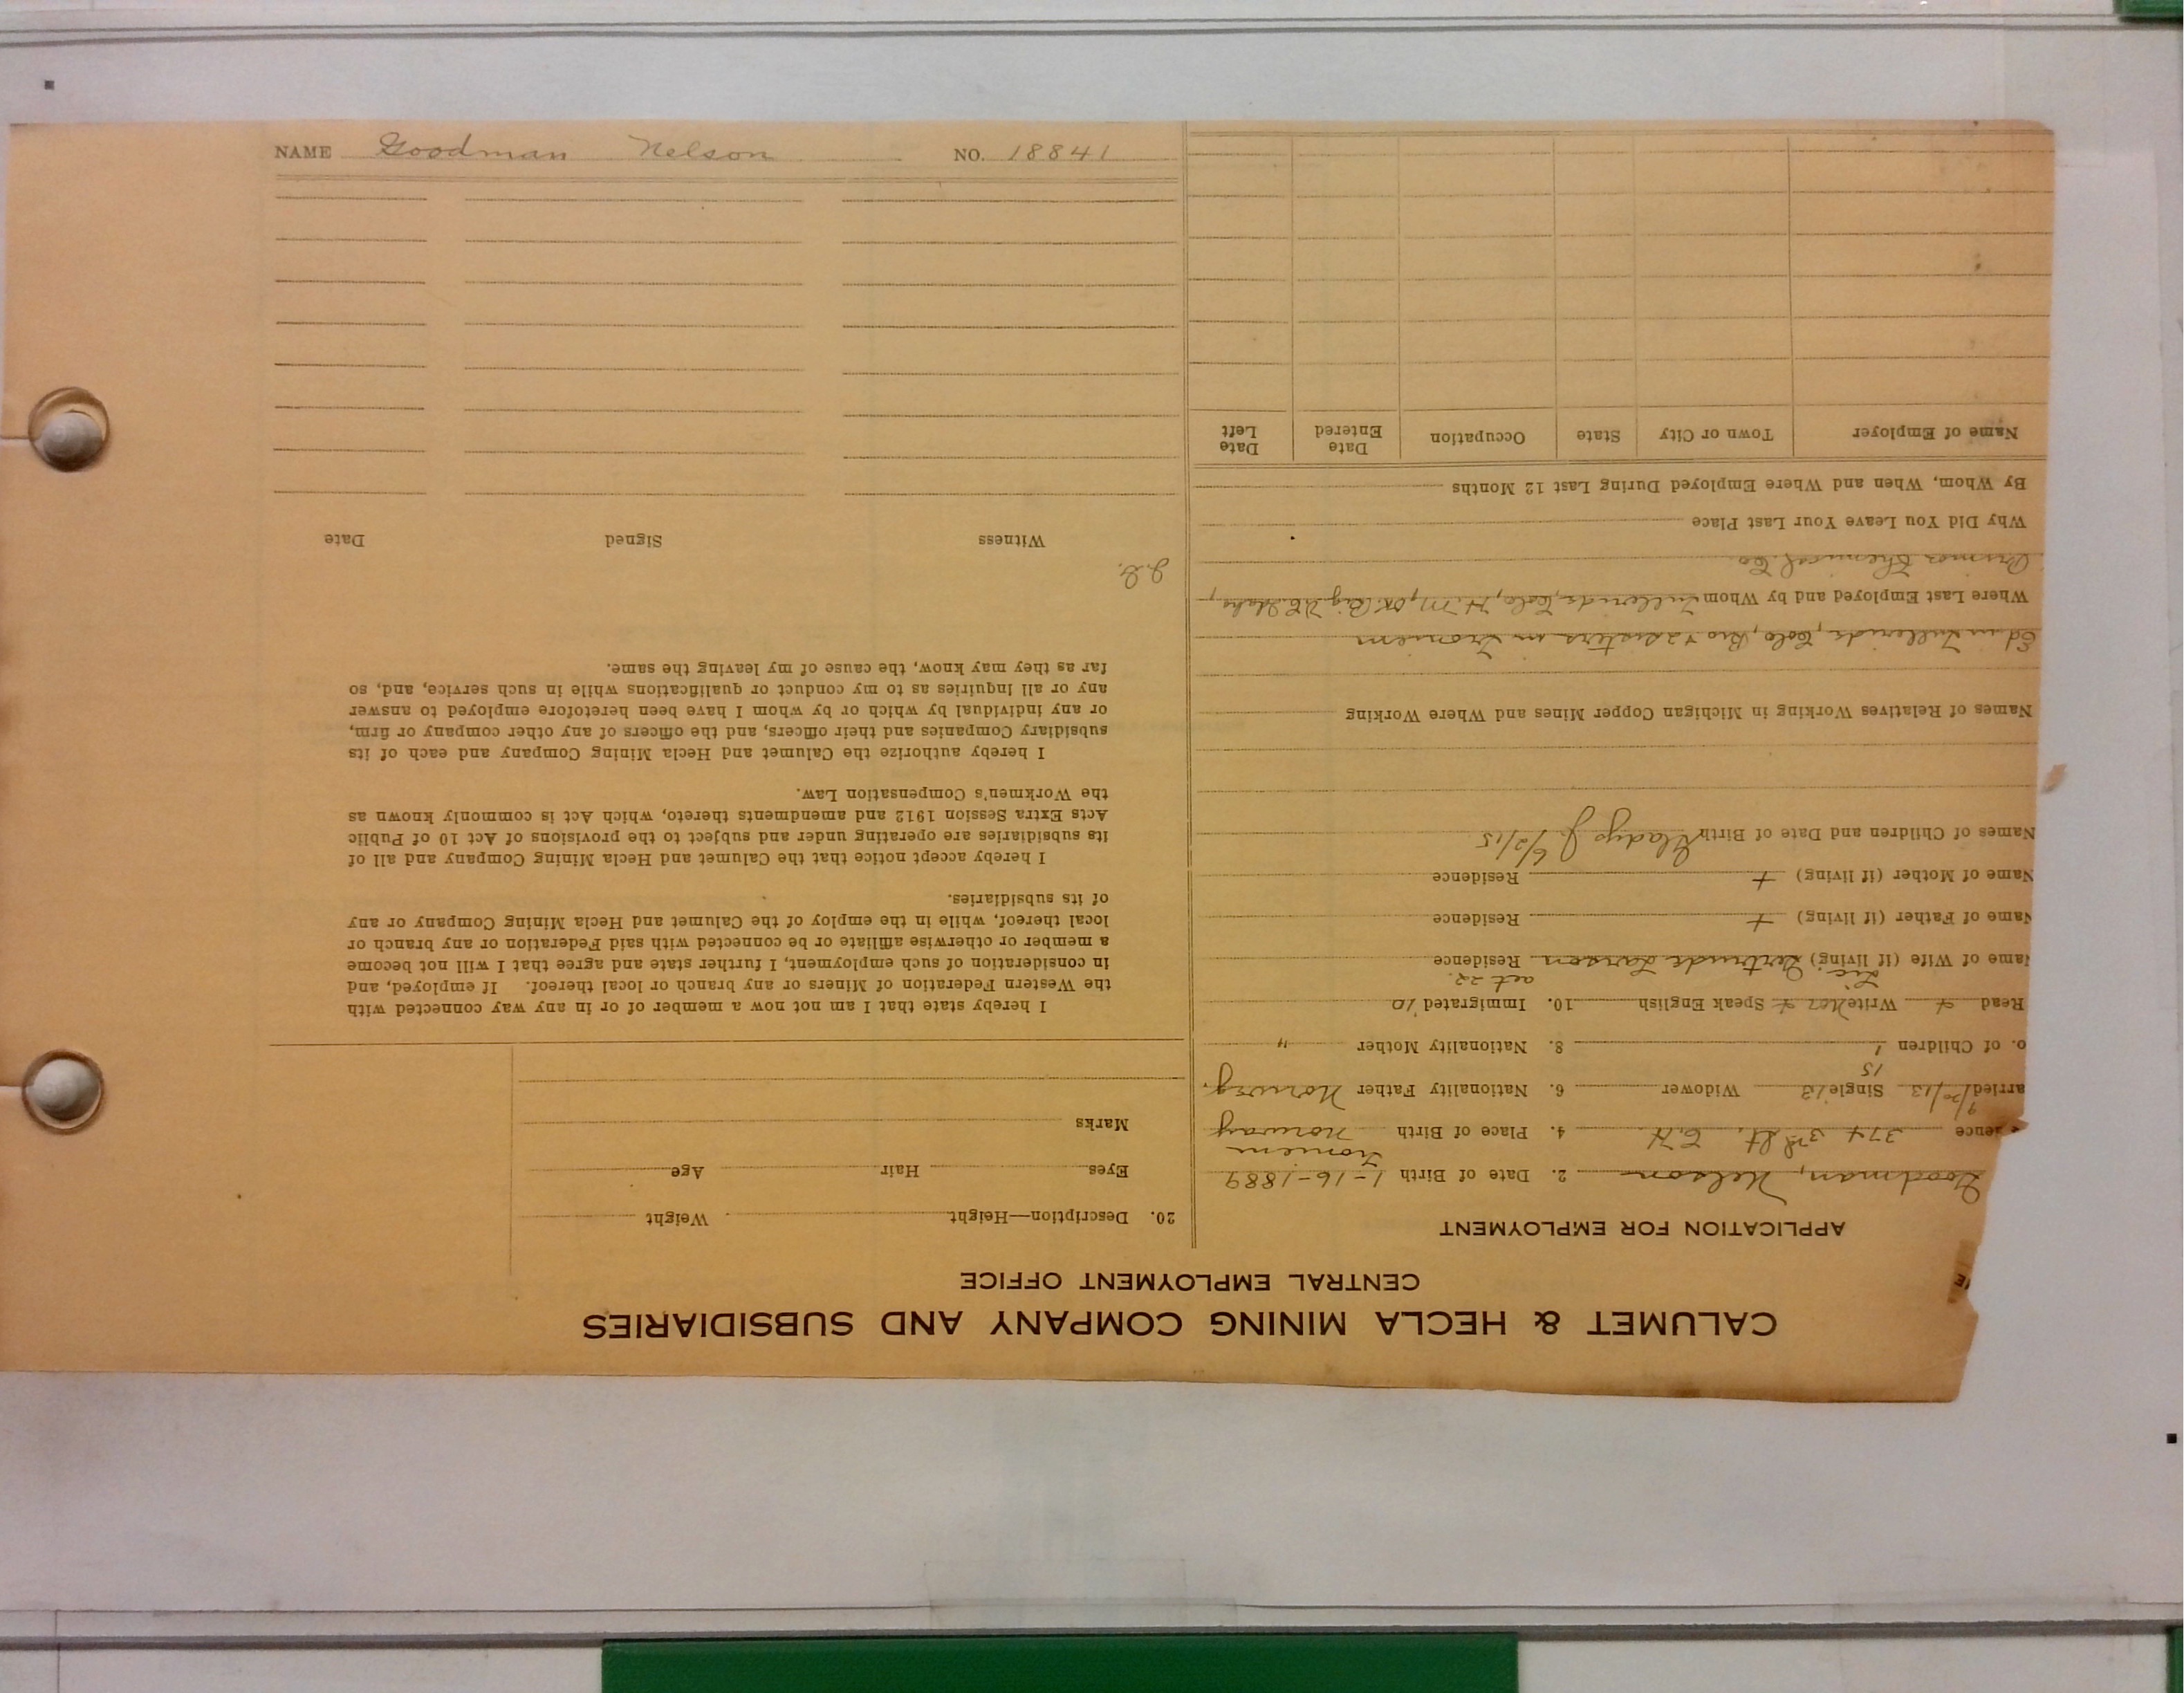 NAME Goodman Nelson NO. 18841
CALUMET & HECLA MINING COMPANY AND SUBSIDIARIES
CENTRAL EMPLOYMENT OFFICE
APPLICATION FOR EMPLOYMENT
Goodman, Nelson 2. Date of Birth 1-16-1889
ence 374 3rd St. 4. Place of Birth Norway
arried 9/20/13 Single 13 Widower 6. Nationality Father Norweg.
15
o. of Children 1 8. Nationality Mother "
Read + Write Nor + Speak English 10. Immigrated '10
Name of Wife (if living) Gertrude Larson Residence
Name of Father (if living) + Residence
Name of Mother (if living) + Residence
Names of Children and Date of Birth Gladys J 6/2/15
Names of Relatives Working in Michigan Copper Mines and Where Working
Ed in Telluride, Colo, Bro + 2 sisters in
Where Last Employed and by Whom Telluride, Colo,
Chemical Co
Why Did You Leave Your Last Place
By Whom, When and Where Employed During Last 12 Months
Name of Employer Town or City State Occupation Date Entered Date Left
20. Description—Height Weight
Eyes Hair Age
Marks
I hereby state that I am not now a member of or in any way connected with
the Western Federation of Miners or any branch or local thereof. If employed, and
in consideration of such employment, I further state and agree that I will not become
a member or otherwise affiliate or be connected with said Federation or any branch or
local thereof, while in the employ of the Calumet and Hecla Mining Company or any
of its subsidiaries.
I hereby accept notice that the Calumet and Hecla Mining Company and all of
its subsidiaries are operating under and subject to the provisions of Act 10 of Public
Acts Extra Session 1912 and amendments thereto, which Act is commonly known as
the Workmen's Compensation Law.
I hereby authorize the Calumet and Hecla Mining Company and each of its
subsidiary Companies and their officers, and the officers of any other company or firm,
or any individual by which or by whom I have been heretofore employed to answer
any or all inquiries as to my conduct or qualifications while in such service, and, so
far as they may know, the cause of my leaving the same.
Witness Signed Date